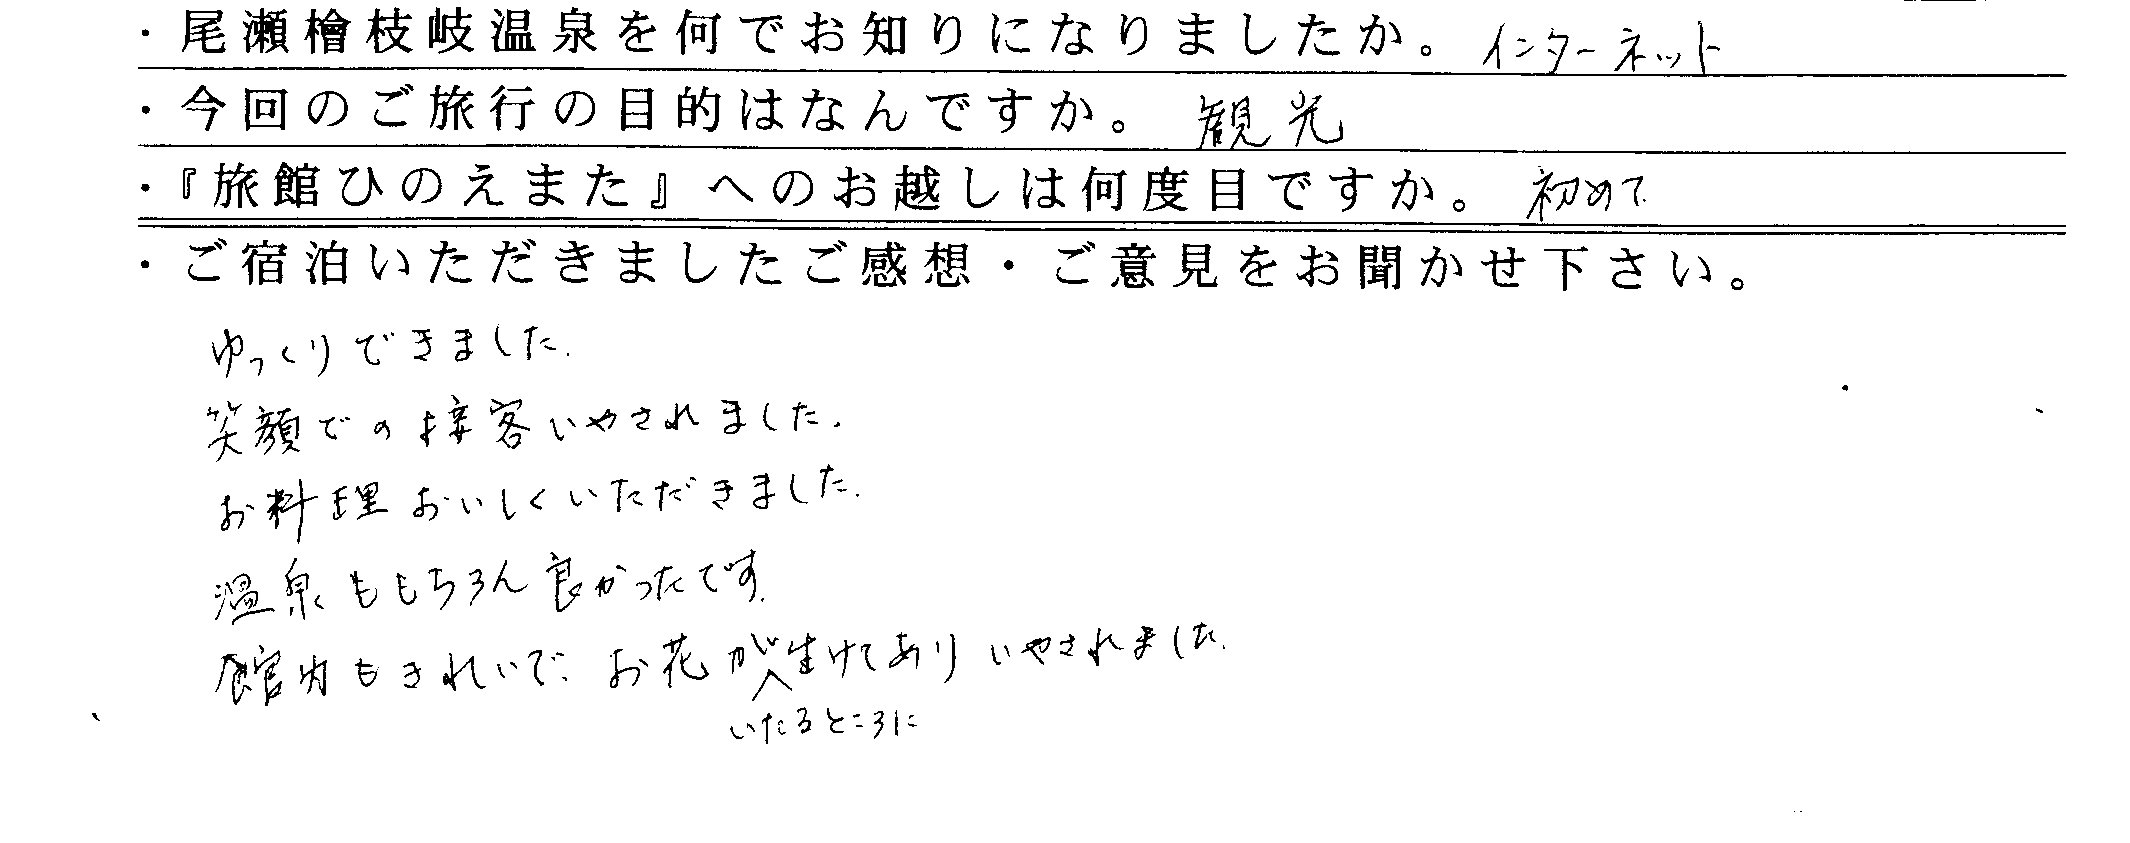 ・尾瀬檜枝岐温泉を何でお知りになりましたか。 インターネット
・今回のご旅行の目的はなんですか。 観光
・『旅館ひのえまた』へのお越しは何度目ですか。 初めて
・ご宿泊いただきましたご感想・ご意見をお聞かせ下さい。
ゆっくりできました.
笑顔での接客いやされました.
お料理おいしくいただきました.
温泉ももちろん良かったです.
館内もきれいで、お花が生けてありいやされました.
いたるところに